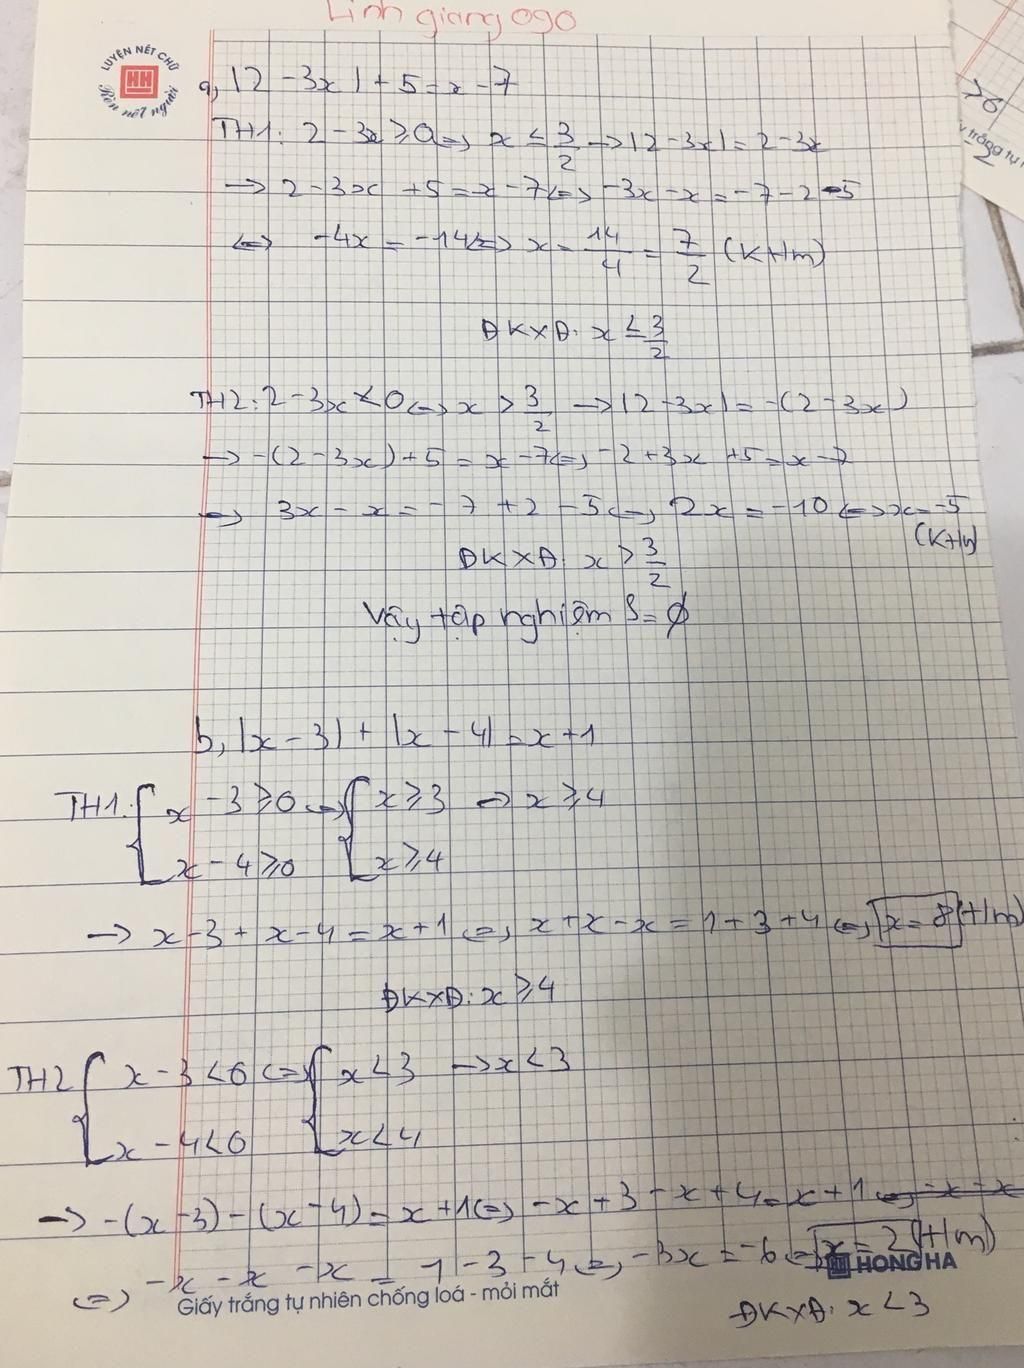 Linh giang 090
LUYỆN NÉT CHỮ
HH
Rèn nết người
a, |2 - 3x| + 5 = x - 7
TH1: 2 - 3x ≥ 0 <=> x ≤ 3/2 -> |2 - 3x| = 2 - 3x
-> 2 - 3x + 5 = x - 7 <=> -3x - x = -7 - 2 - 5
<=> -4x = -14 <=> x = 14/4 = 7/2 (K t/m)
ĐKXĐ: x ≤ 3/2
TH2: 2 - 3x < 0 <=> x > 3/2 -> |2 - 3x| = -(2 - 3x)
-> -(2 - 3x) + 5 = x - 7 <=> -2 + 3x + 5 = x - 7
<=> 3x - x = -7 + 2 - 5 <=> 2x = -10 <=> x = -5
(K t/m)
ĐKXĐ: x > 3/2
Vậy tập nghiệm S = ∅
b, |x - 3| + |x - 4| = x + 1
TH1: { x - 3 ≥ 0 <=> { x ≥ 3 -> x ≥ 4
x - 4 ≥ 0 x ≥ 4
-> x - 3 + x - 4 = x + 1 <=> x + x - x = 1 + 3 + 4 <=> x = 8 (t/m)
ĐKXĐ: x ≥ 4
TH2 { x - 3 < 0 <=> { x < 3 -> x < 3
x - 4 < 0 x < 4
-> -(x - 3) - (x - 4) = x + 1 <=> -x + 3 - x + 4 = x + 1 <=> -x - x
<=> -x - x - x = 1 - 3 - 4 <=> -3x = -6 <=> x = 2 (t/m)
HONG HA
Giấy trắng tự nhiên chống loá - mỏi mắt
ĐKXĐ: x < 3